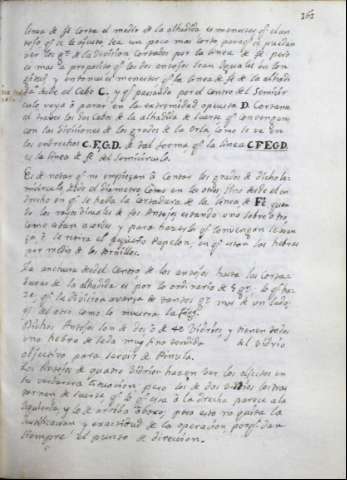 162
linea de fè corta el medio de la alhidada es menester ql el an-
tojo ql se le ajusta sea un poco mas corto para ql se puedan
ver los gs. de la division cortados por la linea de fè pero
es mas a proposito ql los dos antojos sean iguales en lon-
gitud y entonces es menester ql la linea de fè de la alhida-
da desde el Cabo C. y ql passando por el centro del semicir-
culo vaya à parar en la extremidad opuesta D. Cortanse
al traves los dos Cabos de la alhidada de suerte ql convengan
con las divisiones de los grados de la orla, como se ve en
los extrechos C.F.G.D. de tal forma ql la linea C F E G D
es la linea de fè del semicirculo.
Es de notar ql no empiezan à contar los grados de dicho Se-
micirculo, desde el diametro, como en los otros, sino desde el en-
drecho en ql se halla la cortadura de la linea de Fè quan-
do los rayos visuales de los Antojos estando uno sobre otro,
como esten acordes y para hazerlo ql convengan
se retira el pequeño Papelon, en ql estan las hebras
por medio de los tornillos.
La anchura desde el centro de los antojos hasta las corta-
duras de la alhidada, es por lo ordinario de gs. lo ql ha-
ze, ql la division avanza tantos gs. mas de un lado,
ql del otro como lo muestra la fig.
Dichos Antojos son de dos ò de 4 Vidrios, y tienen todos
una hebra de seda muy fina tendida al Vidrio
objectivo para servir de Pinula.
Los Antojos de quatro Vidrios hazen ver los objectos en
su verdadera situacion, pero los de dos Vidrios los tras-
tornan de suerte ql lo ql esta à la drecha parece a la
isquierda y lo de arriba abaxo; pero esto no quita la
justificacion y exactitud de la operacion, porql dan
siempre el punto de direccion.